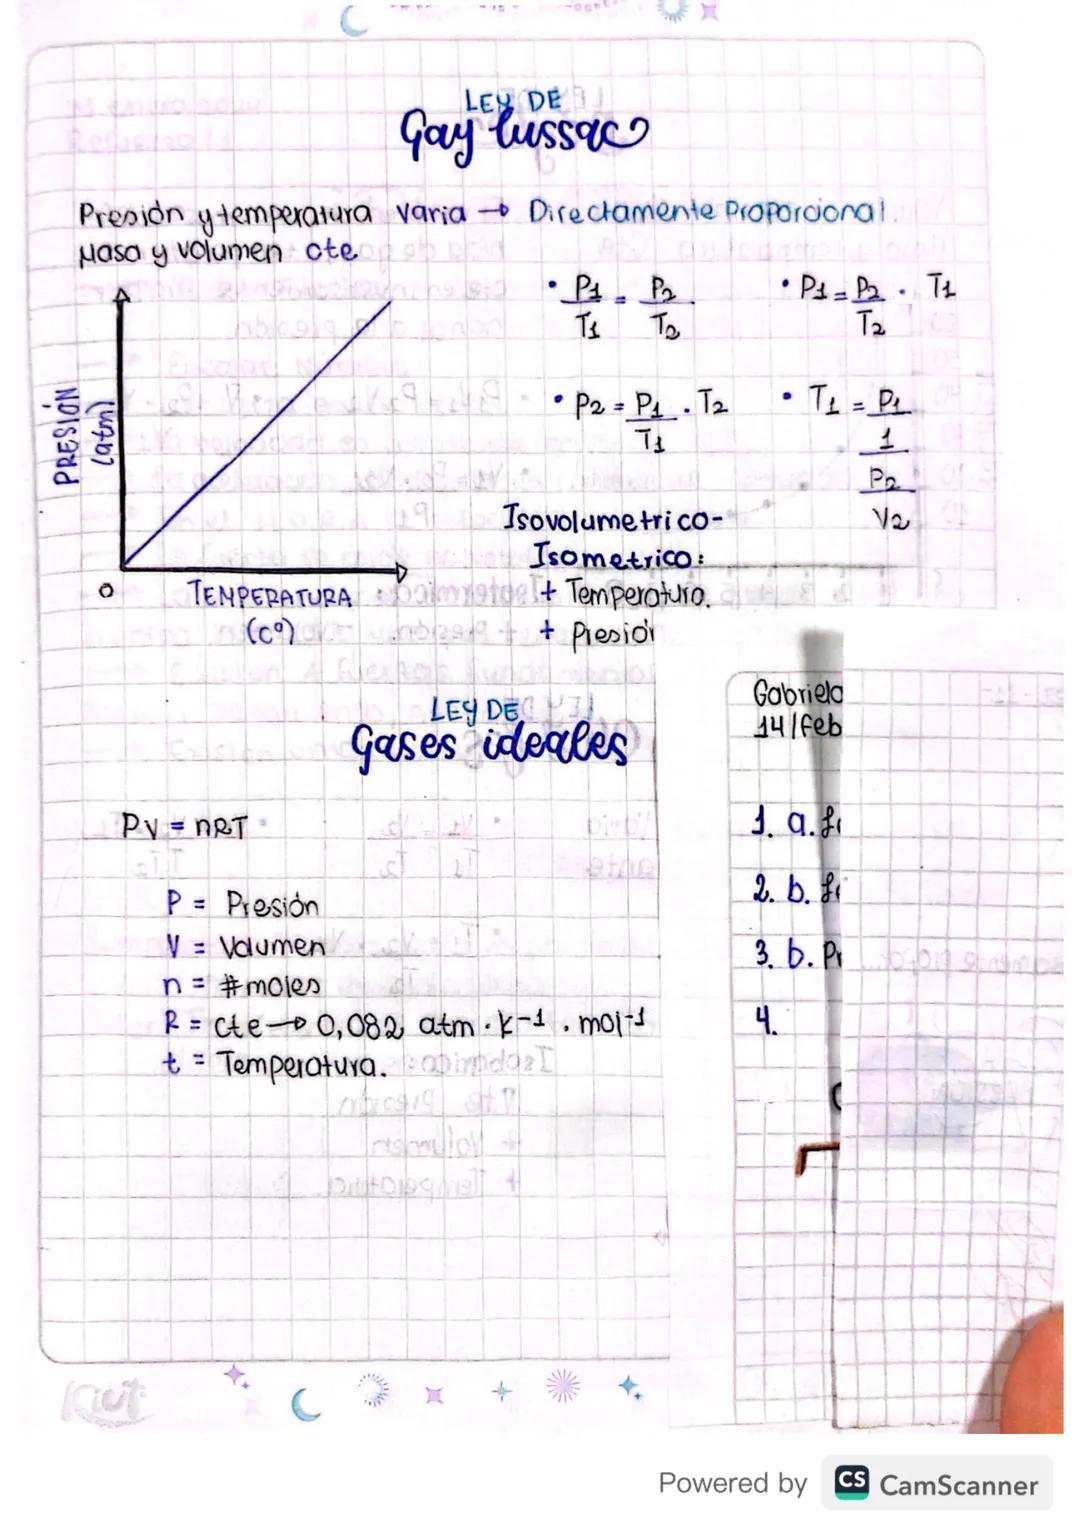 LEY DE
Gay lussac
Presión y temperatura varia → Directamente Proporcional.
Masa y volumen cte
• P1 = P2
T1 T2
• P1 = P2 . T1
T2
• P2 = P1 . T2
T1
• T1 = P1
1
P2
V2
PRESIÓN
(atm)
0
TEMPERATURA
(c°)
Isovolumetrico-
Isometrico:
+ Temperatura.
+ Presión
LEY DE
Gases ideales
PV = nRT
P = Presión
V = Volumen
n = #moles
R = cte → 0,082 atm . k-1 . mol-1
t = Temperatura.
Gabriela
14/feb
1. a.
2. b.
3. b. Pr
4.
Kiut
Powered by CS CamScanner